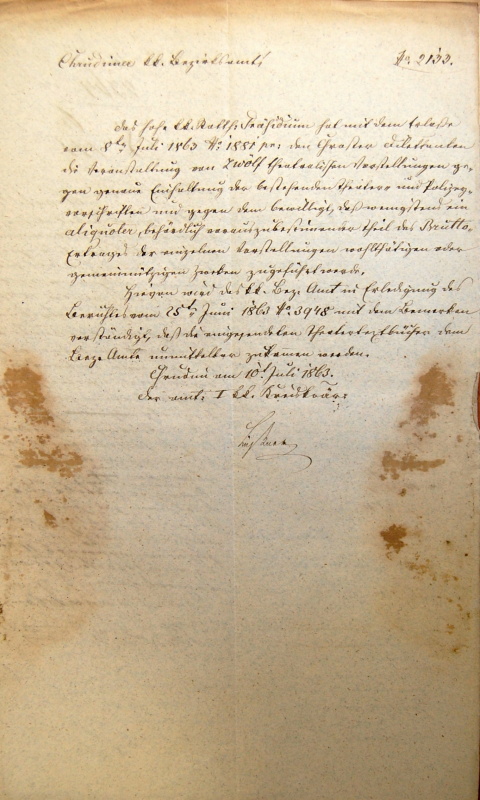 Chrudimer kk. Bezirksamt No 2133.
Das hohe kk. Statth: Präsidium hat mit dem Erlaße
vom 8ten Juli 1863 No 1881 pr: den Dilettanten
die Veranstaltung von zwölf theatralischen Vorstellungen ge-
gen genaue Einhaltung der bestehenden Theater- und Polizey-
vorschriften und gegen dem bewilligt, daß wenigstens ein
aliquoter, behördlich vorauszubestimmender Theil des Brutto-
Ertrages der einzelnen Vorstellungen wohlthätigen oder
gemeinnützigen Zwecken zugeführt werde.
Hievon wird das kk. Bez. Amt in Erledigung des
Berichtes vom 25ten Juni 1863 No 3948 mit dem Bemerken
verständigt, daß die eingesendeten Theatertextbücher dem
Bez. Amte unmittelbar zukomen werden.
Chrudim am 10t Juli 1863.
Der I kk.